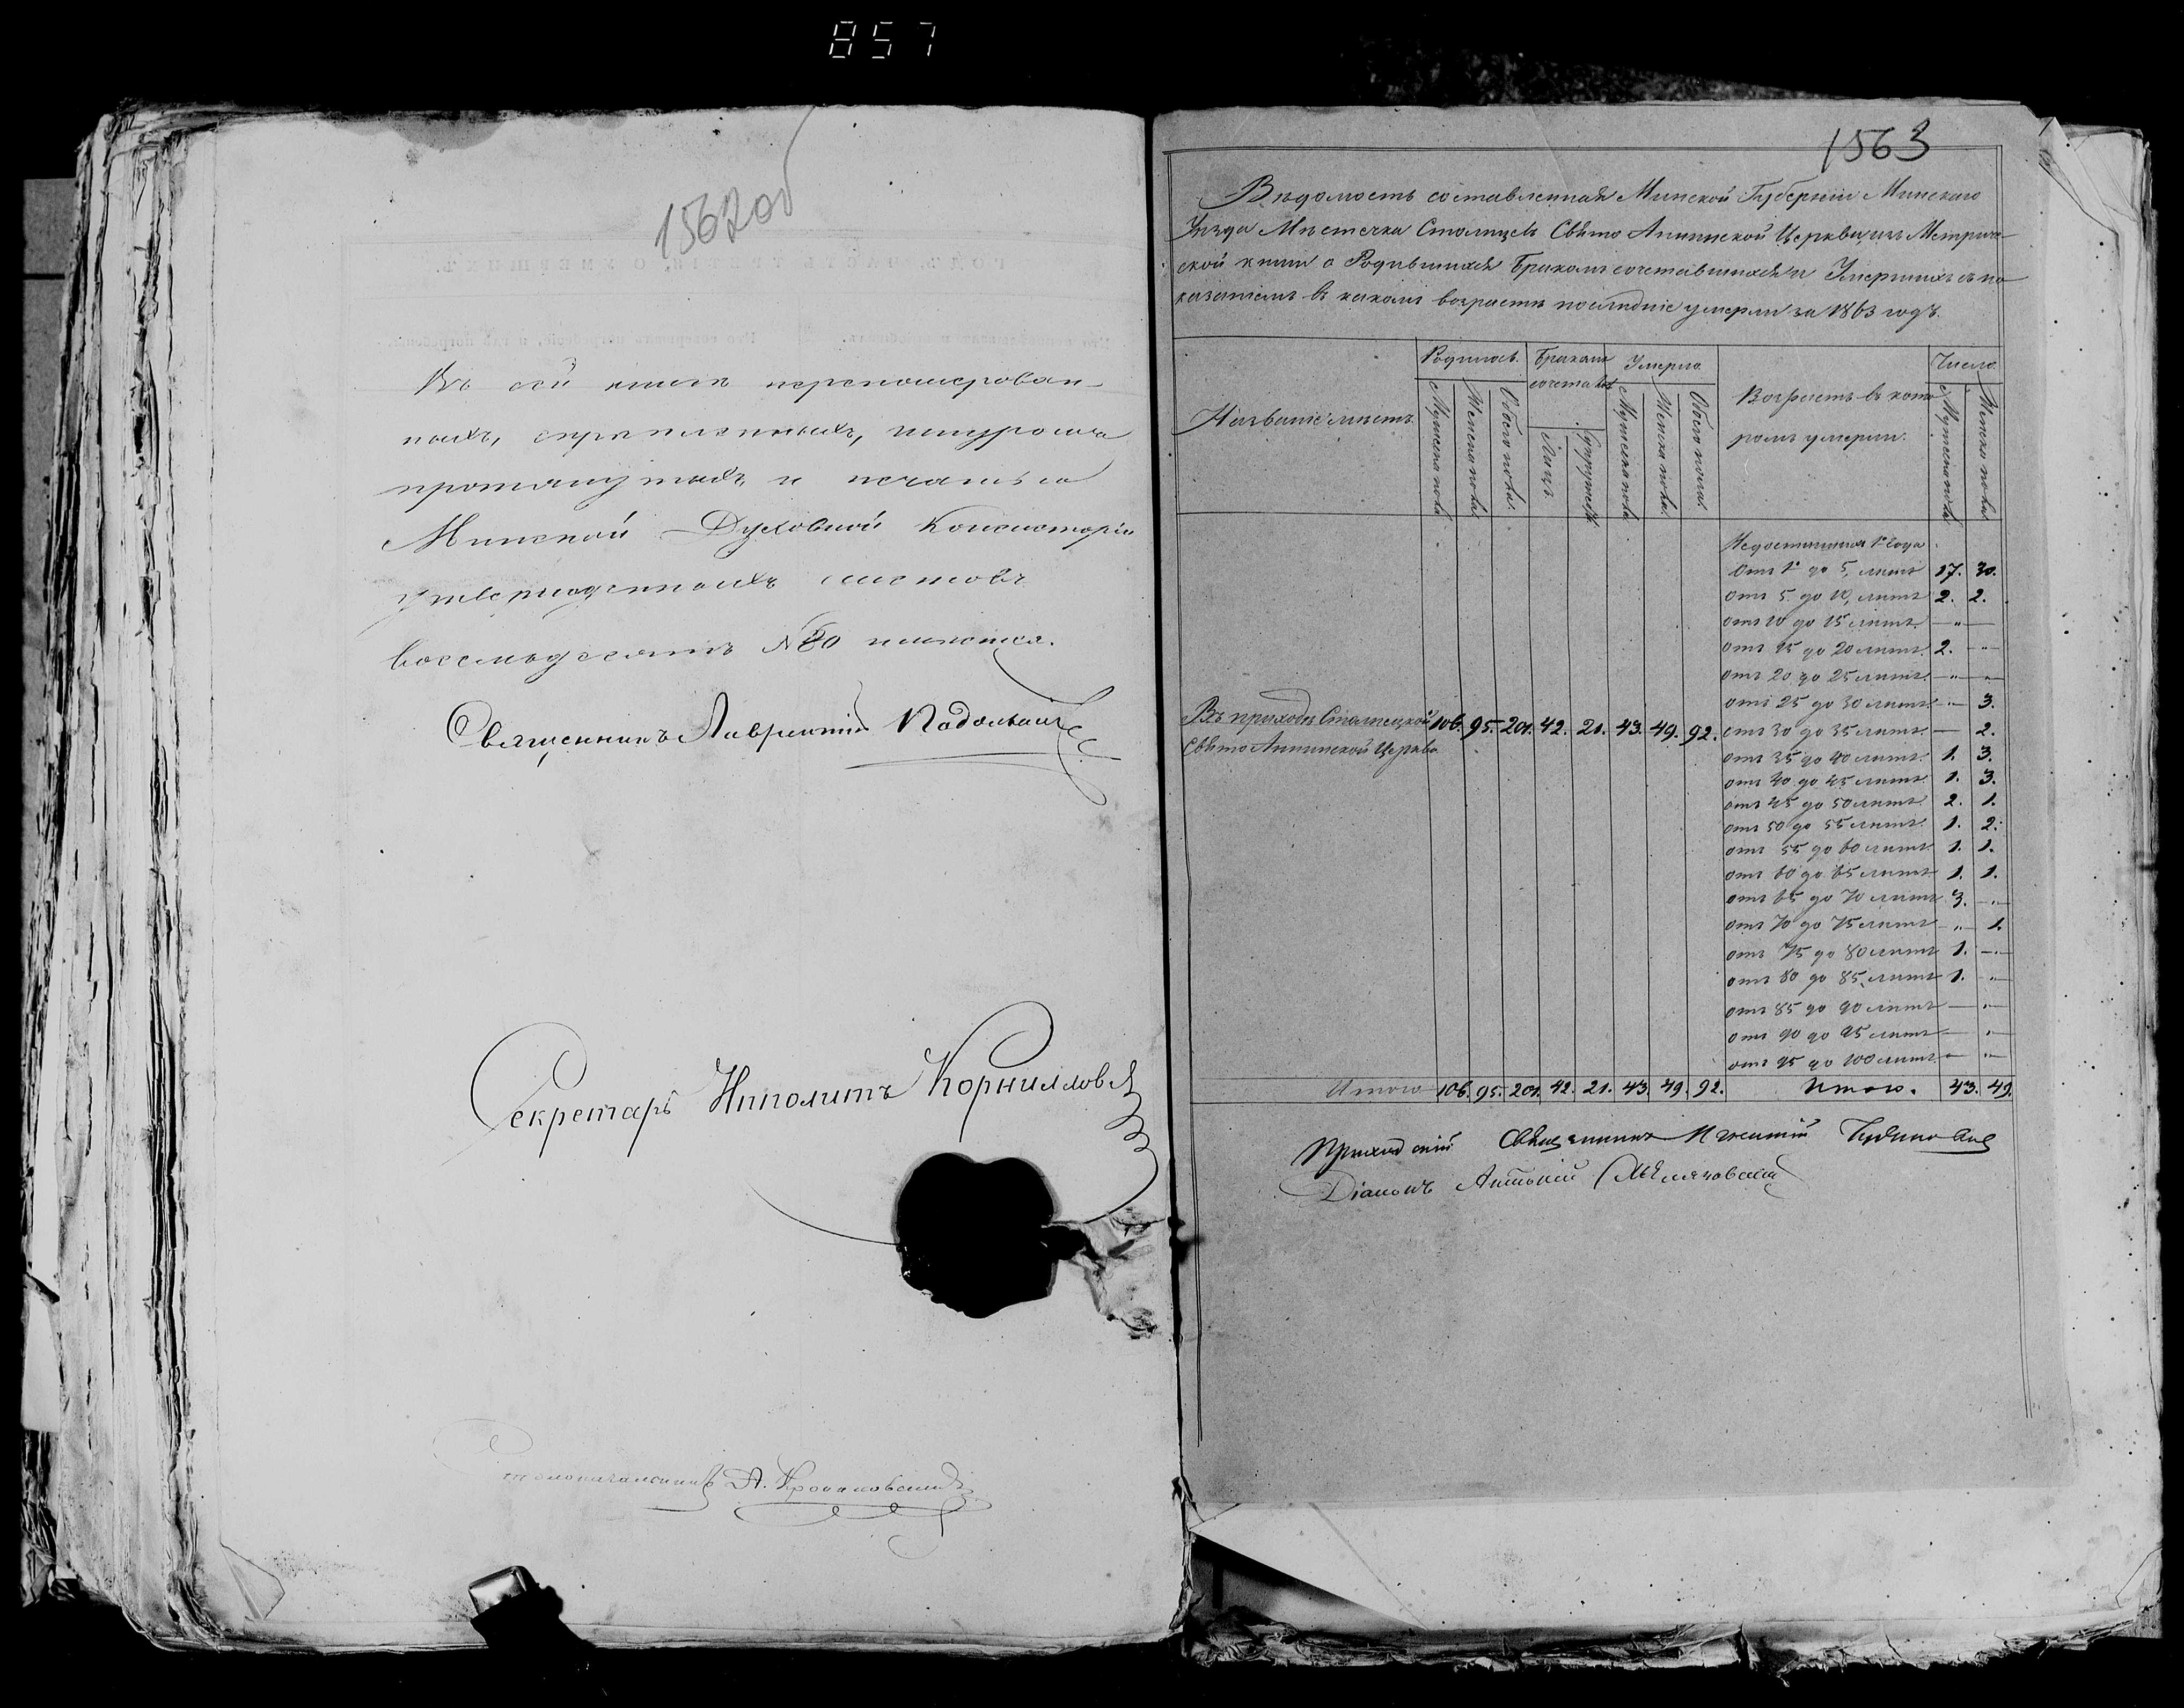 857
1562об
Въ сей книгѣ перенумерован-
ныхъ, скрѣпленныхъ, шнуромъ
протянутыхъ и печатью
Минской Духовной Консисторіи
утвержденныхъ листовъ
восемьдесятъ №80 имѣется.
Священникъ Лаврентій
Секретарь Ипполитъ Корниловъ
Столоначальникъ А.
1563
Вѣдомость составленная Минской Губерніи Минскаго
Уѣзда Мѣстечка Столпцевъ Свято Аннинской Церкви изъ Метриче-
ской книги о Родившихся Бракомъ сочетавшихся и Умершихъ съ по-
казаніемъ въ какомъ возрастѣ послѣдніе умерли за 1863 годъ.
Названіе мѣстъ.
Родилось.
Мужеска пола
Женска пола
Обоего пола.
Бракомъ сочетались
Лицъ.
Супружествъ
Умерло.
Мужеска пола
Женска пола
Обоего пола.
Возрастъ въ кото-
ромъ умерли.
Число.
Мужеска пола
Женска пола
Недостигшихъ 1го года
Отъ 1го до 5, лѣтъ 17. 30.
отъ 5 до 10, лѣтъ 2. 2.
отъ 10 до 15 лѣтъ. — " —
отъ 15 до 20 лѣтъ. 2. — " —
отъ 20 до 25 лѣтъ. — " — "
отъ 25 до 30 лѣтъ. — " — 3.
Въ приходѣ Столпецкой 106. 95. 201. 42. 21. 43. 49. 92. отъ 30 до 35 лѣтъ. — 2.
Свято Аннинской Церкви
отъ 35 до 40 лѣтъ. 1. 3.
отъ 40 до 45 лѣтъ. 1. 3.
отъ 45 до 50 лѣтъ. 2. 1.
отъ 50 до 55 лѣтъ. 1. 2.
отъ 55 до 60 лѣтъ. 1. 1.
отъ 60 до 65 лѣтъ. 1. 1.
отъ 65 до 70 лѣтъ 3. — "
отъ 70 до 75 лѣтъ — " — 1.
отъ 75 до 80 лѣтъ 1. — " —
отъ 80 до 85, лѣтъ 1. — "
отъ 85 до 90 лѣтъ — " —
отъ 90 до 95 лѣтъ — " —
отъ 95 до 100 лѣтъ — " —
Итого 106. 95. 201. 42. 21. 43. 49. 92. Итого. 43. 49.
Приходскій Священникъ
Діаконъ Антоній